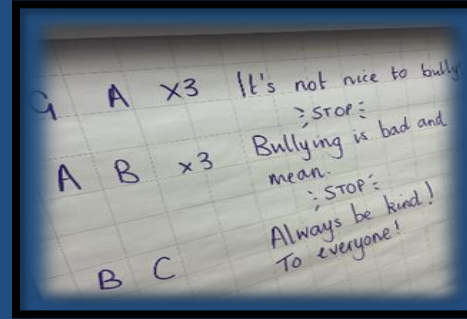 G A x3 It's not nice to bully
STOP
A B x3 Bullying is bad and
mean.
STOP
Always be kind!
B C To everyone!